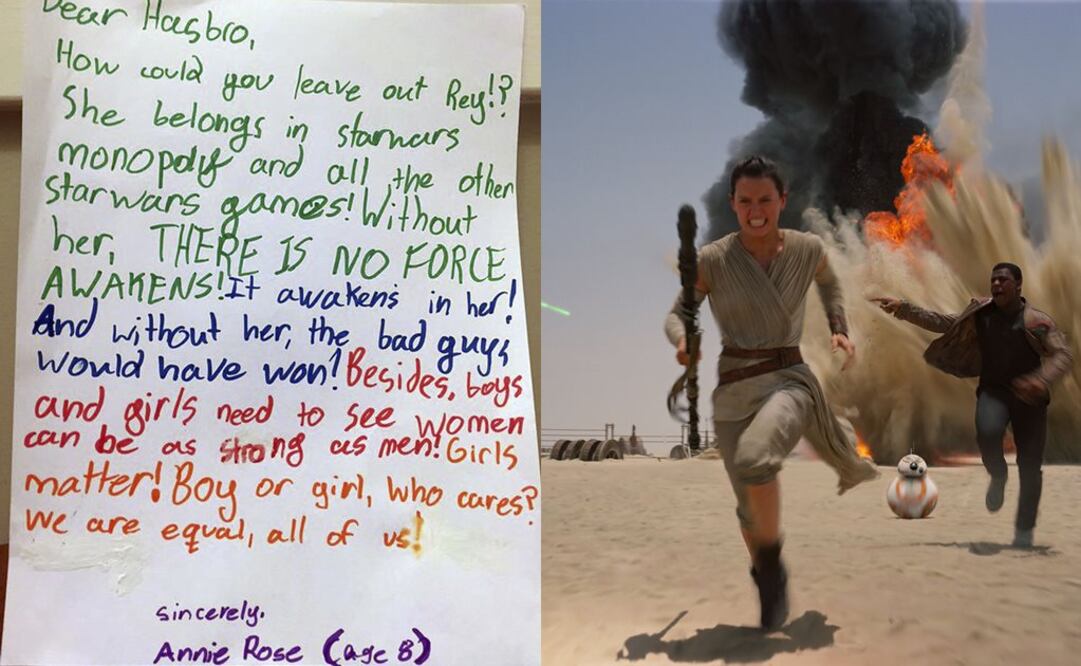 Dear Hasbro,
How could you leave out Rey!?
She belongs in starwars
monopoly and all the other
starwars games! Without
her, THERE IS NO FORCE
AWAKENS! It awakens in her!
And without her, the bad guys
would have won! Besides, boys
and girls need to see women
can be as strong as men! Girls
matter! Boy or girl, who cares?
We are equal, all of us!
sincerely.
Annie Rose (age 8)